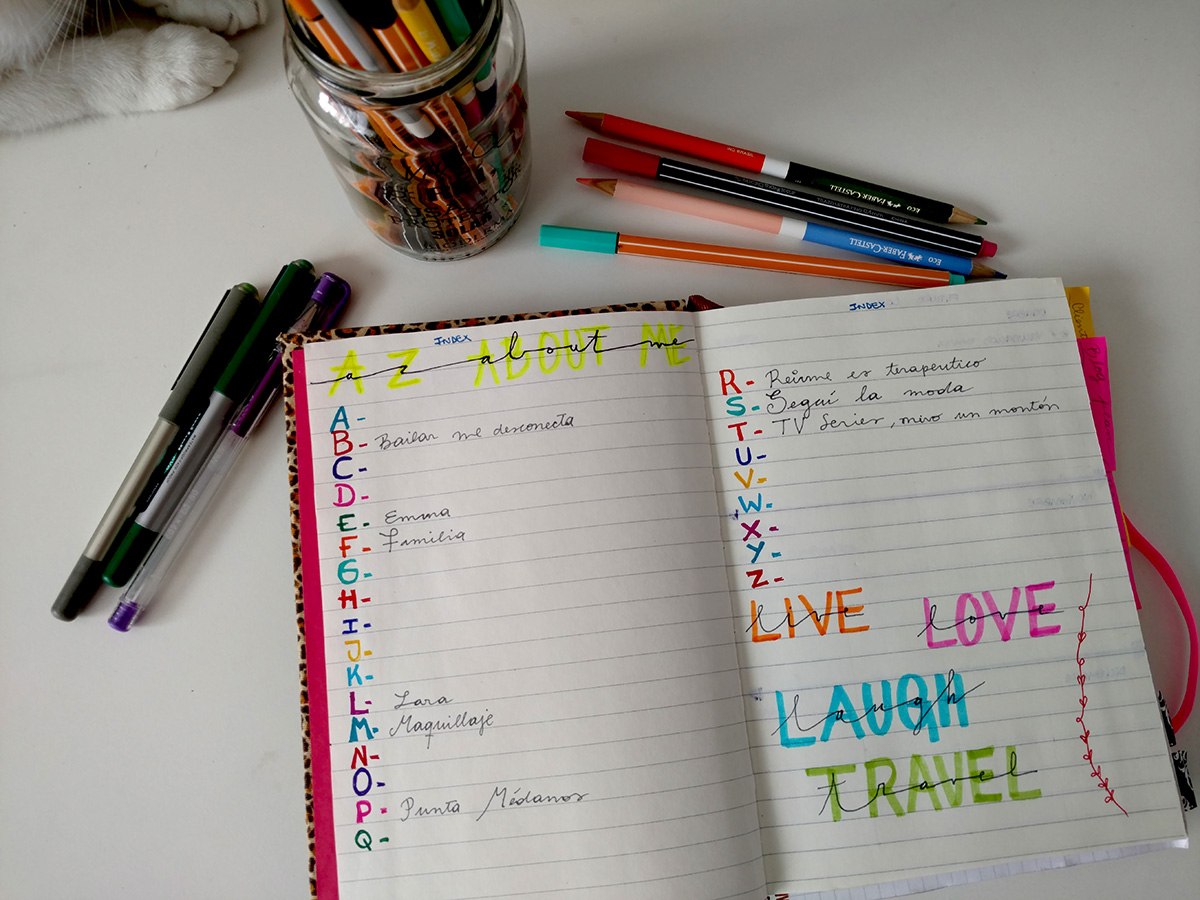 INDEX
A Z ABOUT ME
a z about me
A-
B- Bailar me desconecta
C-
D-
E- Emma
F- Familia
G-
H-
I-
J-
K-
L- Lara
M- Maquillaje
N-
O-
P- Punta Médanos
Q-
INDEX
R- Reirme es terapeutico
S- Seguí la moda
T- TV Series, miro un montón
U-
V-
W-
X-
Y-
Z-
LIVE live
LOVE love
LAUGH laugh
TRAVEL travel
ECO FABER-CASTELL
ECO FABER-CASTELL